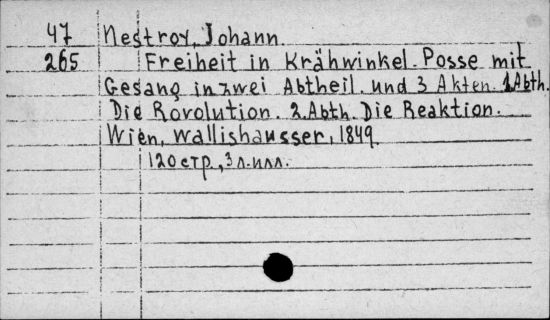 47 Nestroy, Johann.
265 Freiheit in Krähwinkel. Posse mit
Gesang in zwei Abtheil. und 3 Akten. 1.Abth.
Die Rovolution. 2.Abth. Die Reaktion.
Wien, Wallishausser, 1849.
120 стр., 3 л.илл.